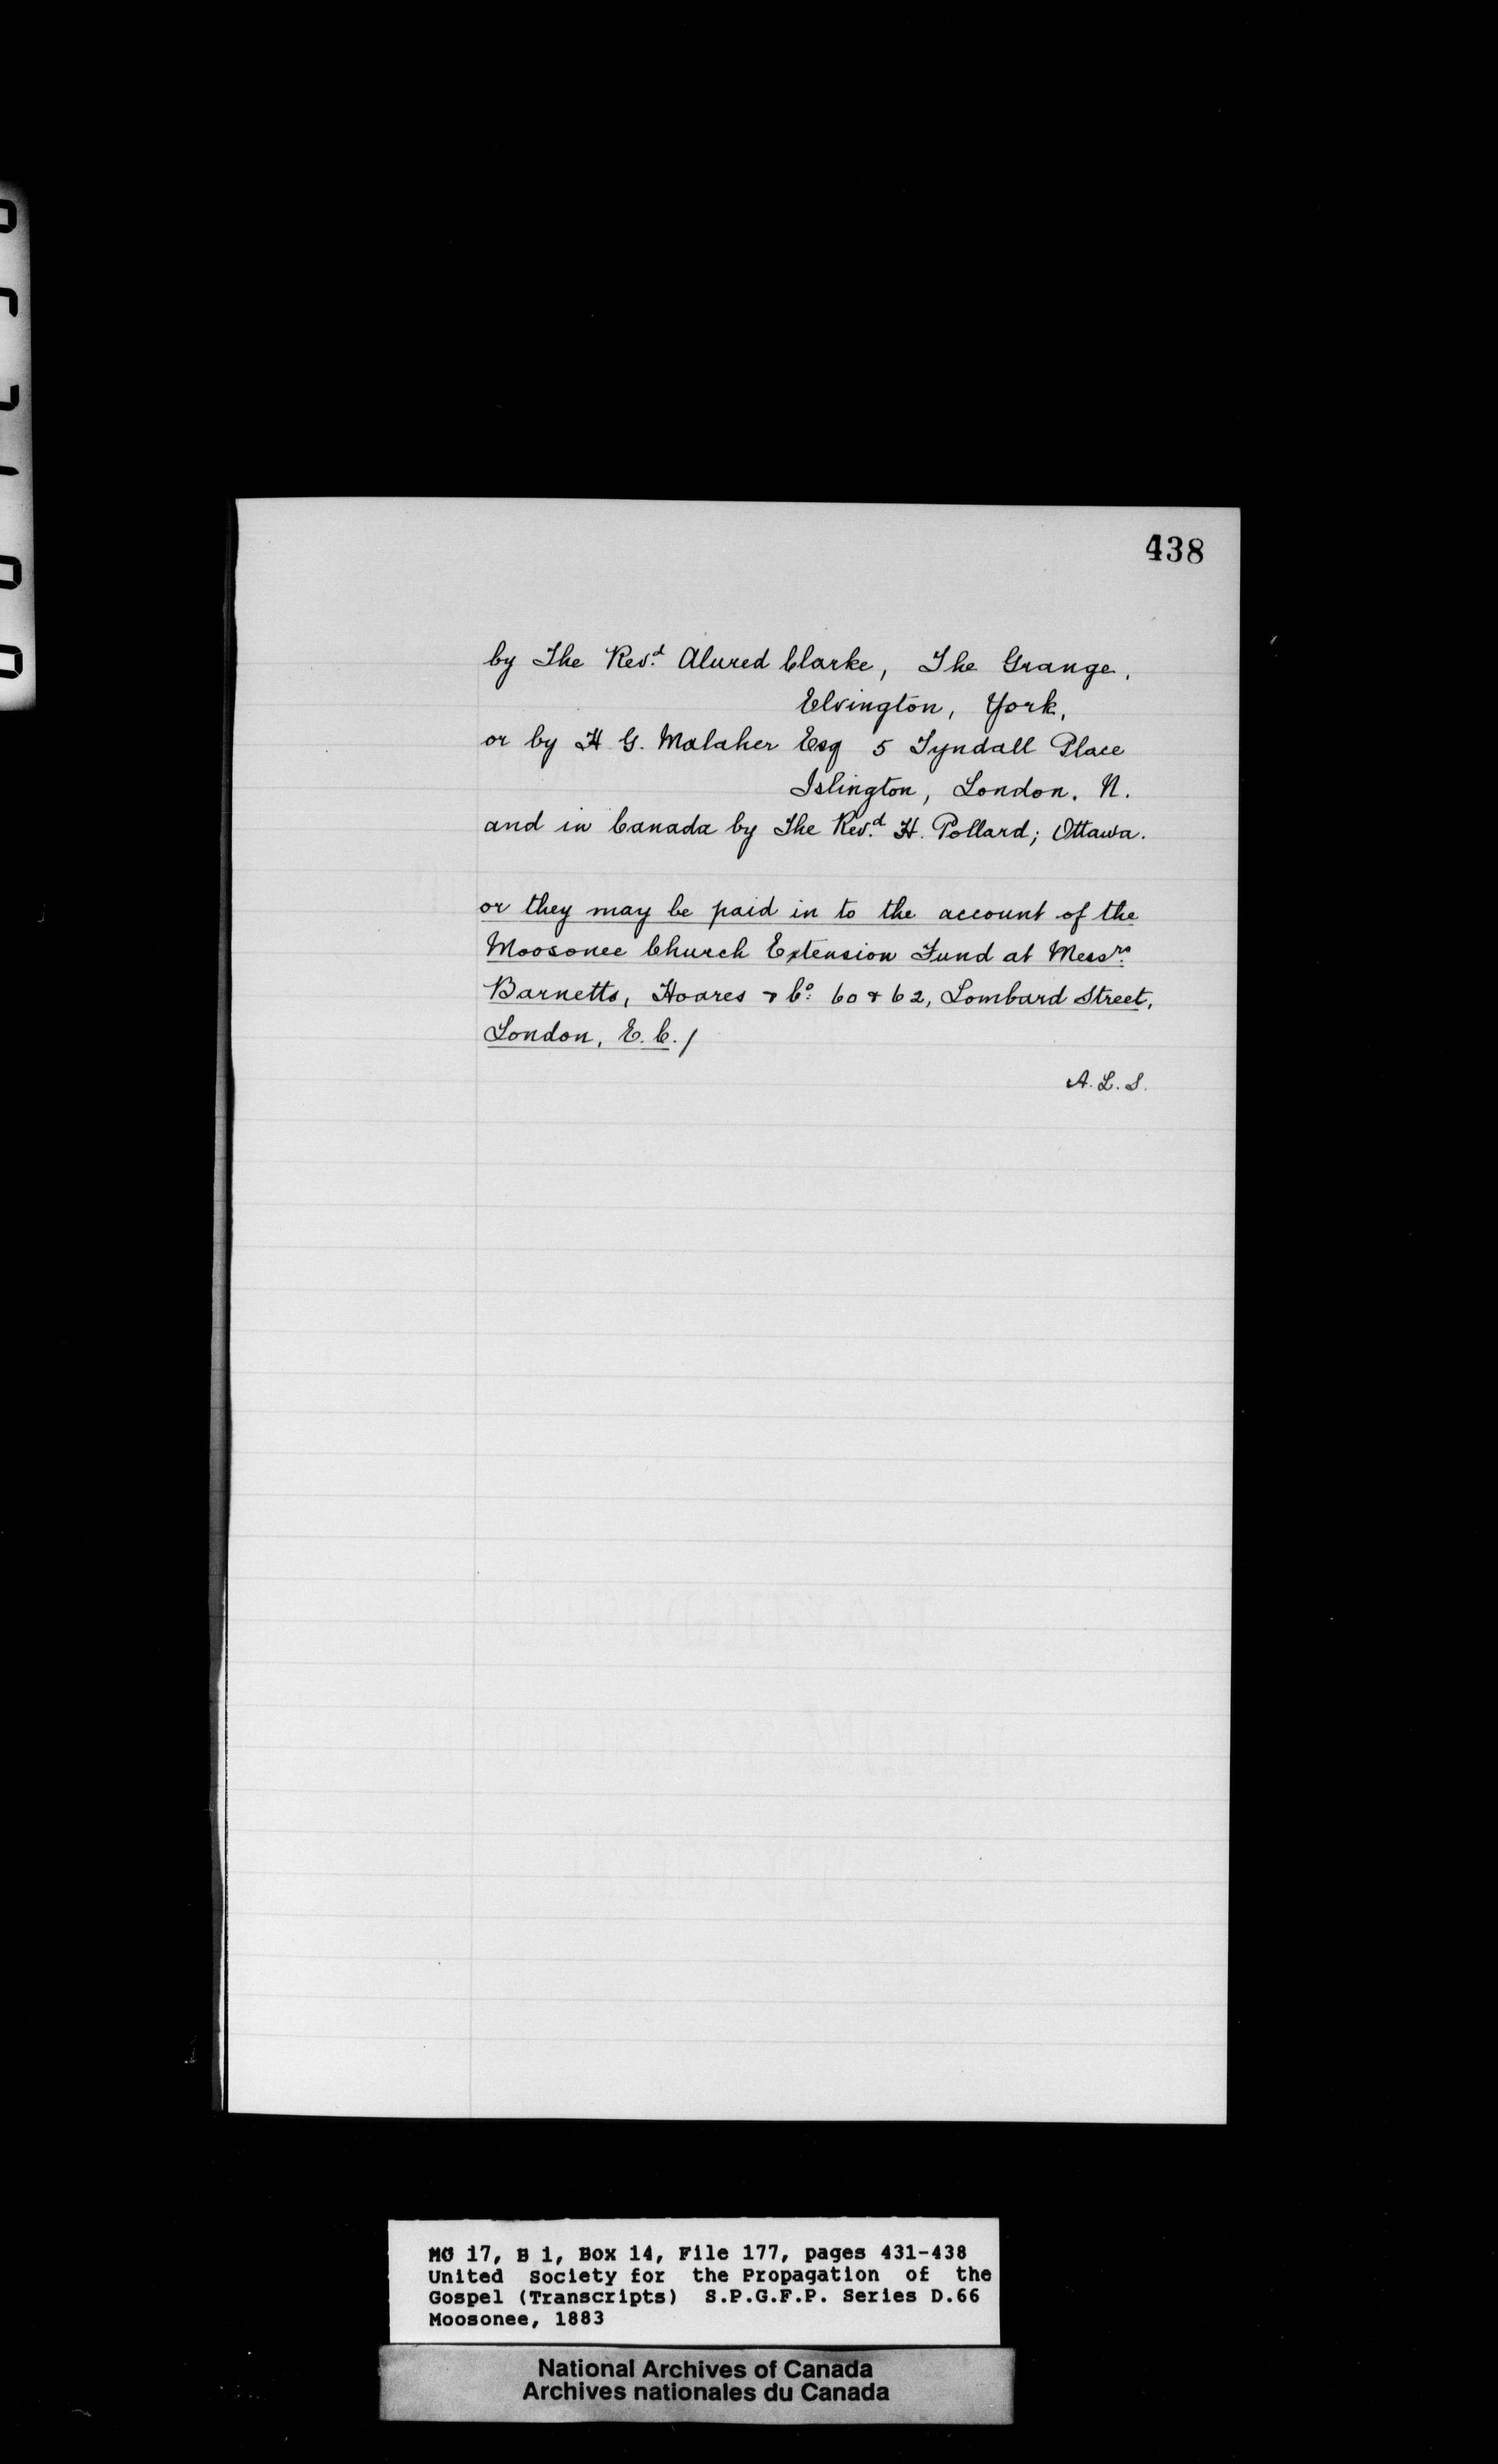 438
by The Rev.d Alured Clarke, The Grange,
Elvington, York,
or by H. G. Malaher Esq 5 Tyndall Place
Islington, London. N.
and in Canada by The Rev.d H. Pollard; Ottawa.
or they may be paid in to the account of the
Moosonee Church Extension Fund at Messrs.
Barnetts, Hoares & Co. 60 & 62, Lombard Street,
London, E. C. /
A. L. S.
MG 17, B 1, Box 14, File 177, pages 431-438
United Society for the Propagation of the
Gospel (Transcripts) S.P.G.F.P. Series D.66
Moosonee, 1883
National Archives of Canada
Archives nationales du Canada